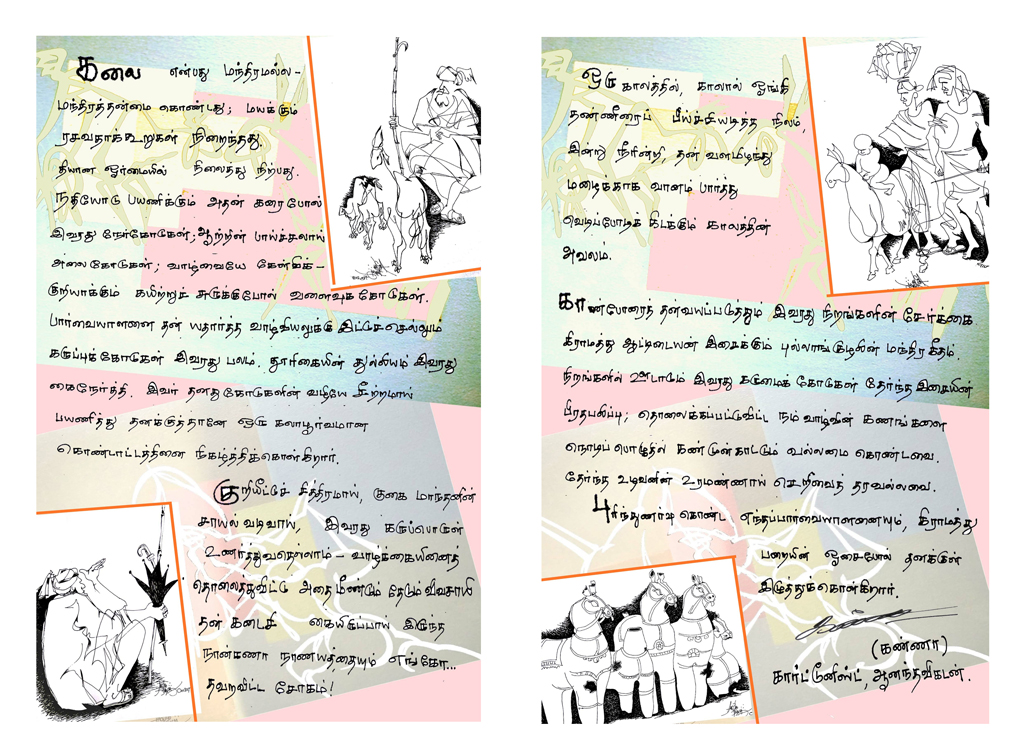 கலை என்பது மந்திரமல்ல -
மந்திரத்தன்மை கொண்டது; மயக்கும்
ரசவாதக்கூறுகள் நிறைந்தது.
தியான ஓர்மையில் நிலைத்து நிற்பது.
நதியோடு பயணிக்கும் அதன் கரைபோல்
இவரது நேர்கோடுகள்; ஆற்றின் பாய்ச்சலாய்
அலைகோடுகள்; வாழ்வையே கேள்விக் -
குறியாக்கும் கயிற்றுச் சுருக்குபோல் வளைவுக்கோடுகள்.
பார்வையாளனை தன் யதார்த்த வாழ்வியலுக்கு இட்டுச்செல்லும்
கருப்புக்கோடுகள் இவரது பலம். தூரிகையின் துல்லியம் இவரது
கைநேர்த்தி. இவர் தனது கோடுகளின் வழியே சீற்றமாய்
பயணித்து தனக்குத்தானே ஒரு கலாபூர்வமான
கொண்டாட்டத்தினை நிகழ்த்திக்கொள்கிறார்.
குறியீட்டுச் சித்திரமாய், குகை மாந்தனின்
சாயல் வடிவாய், இவரது கருப்பொருள்
உணர்த்துவதெல்லாம் - வாழ்க்கையினைத்
தொலைத்துவிட்டு அதை மீண்டும் தேடும் விவசாயி
தன் கடைசி கையிருப்பாய் இருந்த
நான்கணா நாணயத்தையும் எங்கோ...
தவறவிட்ட சோகம்!
ஒரு காலத்தில், காலால் ஓங்கி
தண்ணீரைப் பீய்ச்சியடித்த நிலம்,
இன்று நீரின்றி, தன் வளமிழந்து
மழைக்காக வானம் பார்த்து
வெடிப்போடிக் கிடக்கும் காலத்தின்
அவலம்.
காண்போரைத் தன்வயப்படுத்தும் இவரது நிறங்களின் சேர்க்கை.
கிராமத்து ஆட்டிடையன் இசைக்கும் புல்லாங்குழலின் மந்திர கீதம்.
நிறங்களில் ஊடாடும் இவரது கருமைக் கோடுகள் தேர்ந்த இசையின்
பிரதிபலிப்பு; தொலைக்கப்பட்டுவிட்ட நம் வாழ்வின் கணங்களை
நொடிப் பொழுதில் கண்முன்காட்டும் வல்லமை கொண்டவை.
தேர்ந்த உழவனின் உரமண்ணாய் செறிவைத் தரவல்லவை.
புரிந்துணர்வு கொண்ட எந்தப்பார்வையாளனையும், கிராமத்து
பறையின் ஓசைபோல் தனக்குள்
இழுத்துக்கொள்கிறார்.
(கண்ணா)
கார்ட்டூனிஸ்ட், ஆனந்தவிகடன்.